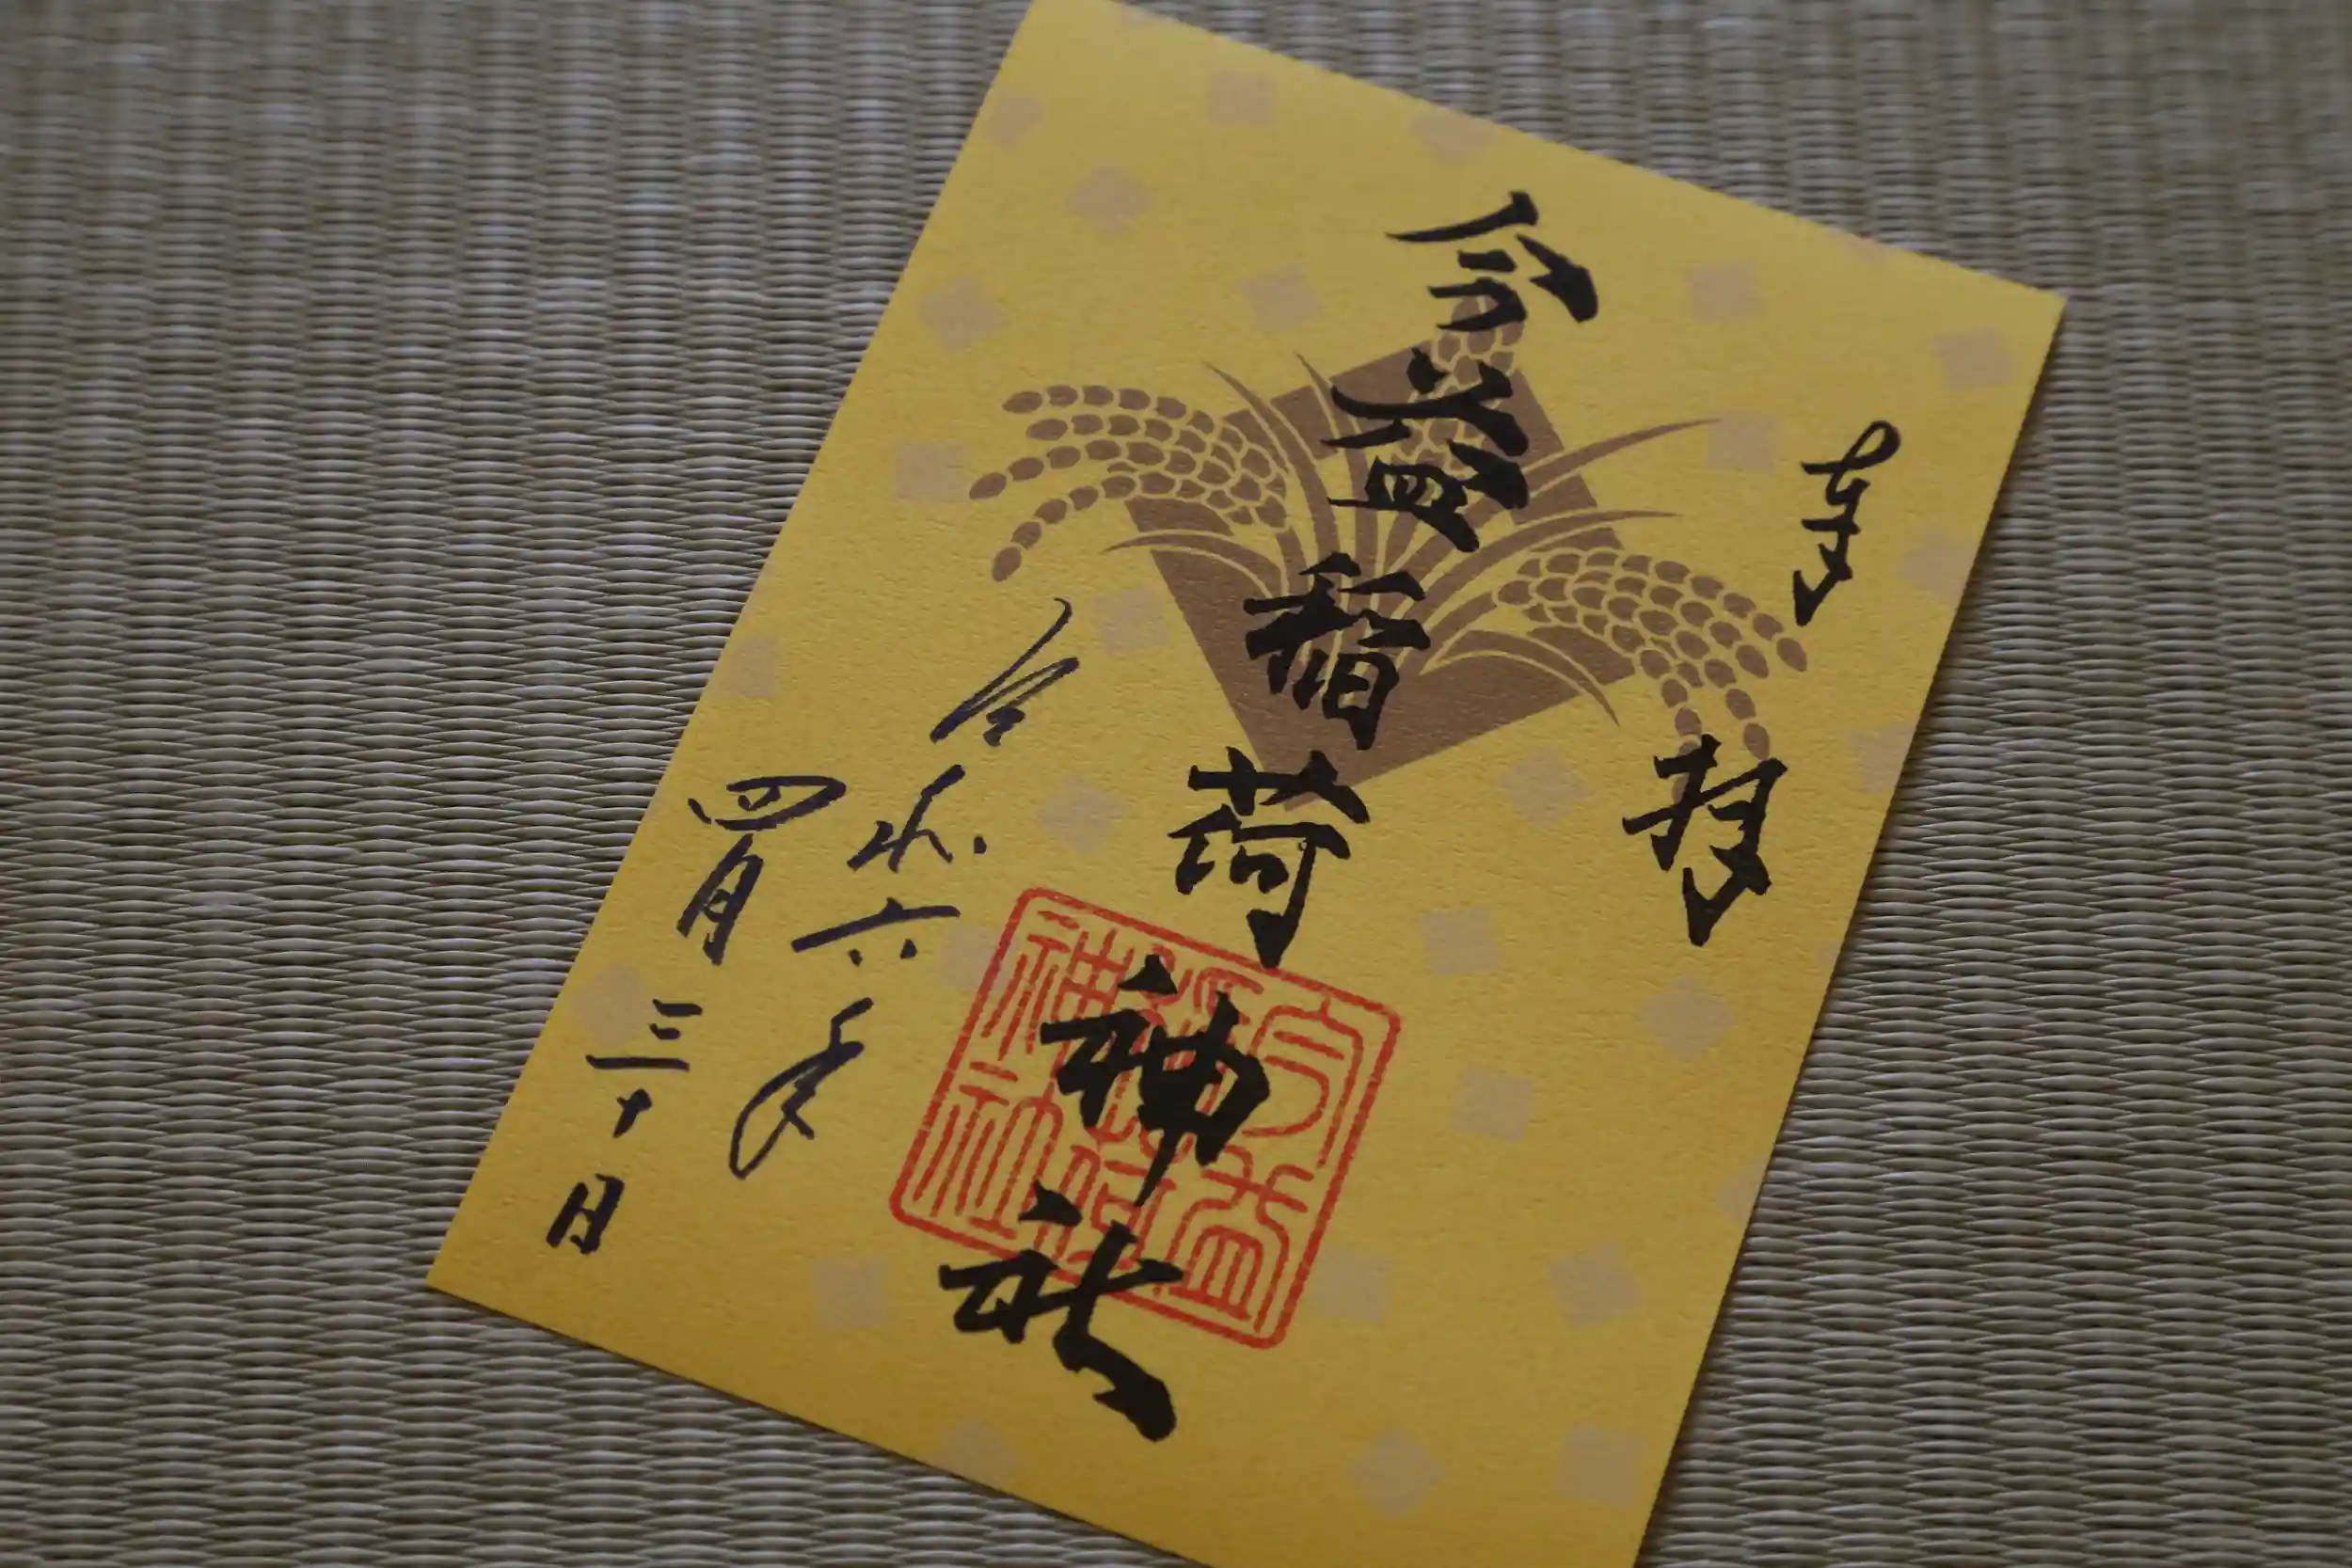 奉拝
今益稲荷神社
今益
稲荷
神社
令和六年
四月三十日